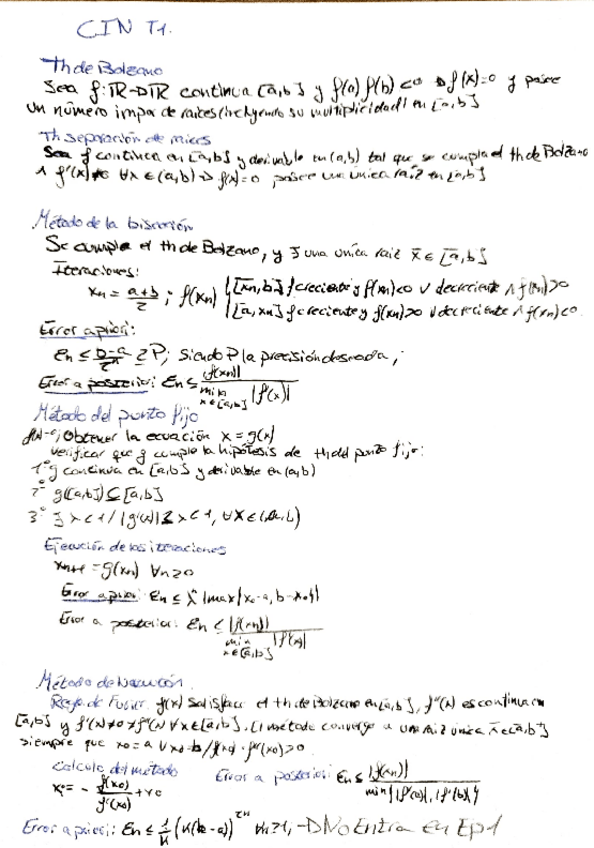 CIN T1.
Th de Bolzano
Sea f: ℝ→ℝ continua [a,b] y f(a) f(b) <0 → f(x)=0 y posee
un número impar de raíces (incluyendo su multiplicidad) en [a,b]
Th separación de raíces
Sea f continua en [a,b] y derivable en (a,b) tal que se cumpla el th de Bolzano
∧ f'(x)≠0 ∀x ∈ (a,b) → f(x)=0 posee una única raíz en [a,b]
Método de la bisección
Se cumple el th de Bolzano, y ∃ una única raíz x̄ ∈ [a,b]
Iteraciones:
xn = a+b/2 ; f(xn) { [xn,b] f creciente y f(xn)<0 ∨ decreciente ∧ f(xn)>0
[a,xn] f creciente y f(xn)>0 ∨ decreciente ∧ f(xn)<0
Error a priori:
En ≤ b-a/2ⁿ ≥ P; siendo P la precisión deseada,
Error a posteriori: En ≤ |f(xn)| / min x∈[a,b] |f'(x)|
Método del punto fijo
f(x)=0; Obtener la ecuación x = g(x)
Verificar que g cumple la hipótesis de th del punto fijo:
1º g continua en [a,b] y derivable en (a,b)
2º g([a,b]) ⊆ [a,b]
3º ∃ λ<1 / |g'(x)| ≤ λ < 1, ∀x∈(a,b)
Ejecución de las iteraciones
xn+1 = g(xn) ∀n≥0
Error a priori: En ≤ λⁿ |max{x0-a, b-x0}|
Error a posteriori: En ≤ |f(xn)| / min x∈[a,b] |f'(x)|
Método de Newton
Regla de Fourier. f(x) satisface el th de Bolzano en [a,b], f''(x) es continua en
[a,b] y f'(x)≠0≠f''(x) ∀x∈[a,b]. El método converge a una raíz única x̄∈[a,b]
siempre que x0=a ∨ x0=b / f(x0)·f''(x0)>0.
Calculo del método Error a posteriori: En ≤ |f(xn)| / min{|f'(a)|, |f'(b)|}
x1 = - f(x0)/f'(x0) + x0
Error a priori: En ≤ 1/K (K(b-a))^2ⁿ ∀n≥1, → No Entra en Ep1